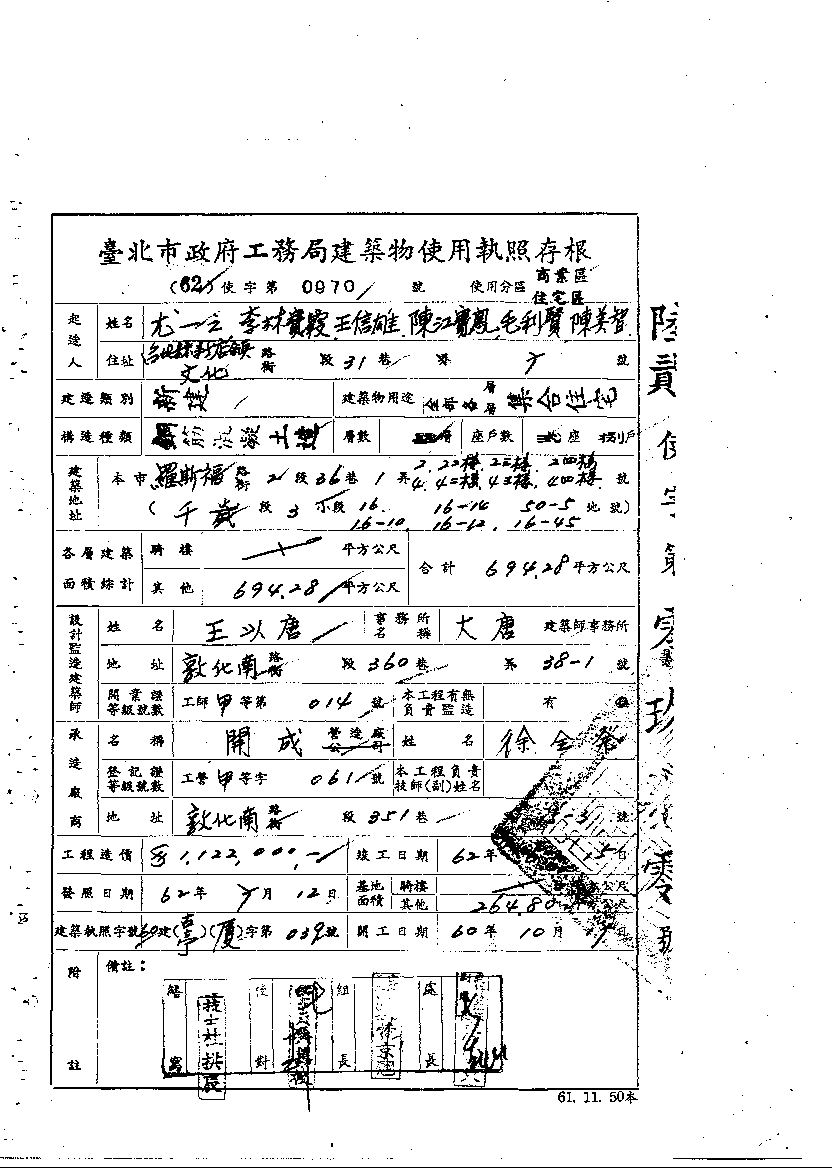 臺北市政府工務局建築物使用執照存根
(62)使字第 0970 號 使用分區 商業區 住宅區
起造人 姓名 尤一之 李林寶霞 王信雄 陳江寶鳳 毛利賢 陳美智
住址 文化 路街 段 31 巷 弄 7 號
建造類別 新建 建築物用途 全部各層 集合住宅
構造種類 鋼筋混凝土造 層數 座戶數 座 戶
建築地址 本市 羅斯福 路街 2 段 36 巷 1 弄 2, 2二樓, 2三樓, 2四樓 4, 4二樓, 4三樓, 4四樓 號
(千歲 段 3 小段 16, 16-14 50-5 地號)
16-10, 16-12, 16-45
各層建築面積綜計 騎樓 平方公尺 合計 694.28 平方公尺
其他 694.28 平方公尺
設計監造建築師 姓名 王以唐 事務所名稱 大唐 建築師事務所
地址 敦化南 路街 段 360 巷 弄 38-1 號
開業證等級號數 工師 甲 等第 014 號 本工程有無負責監造 有
承造廠商 名稱 開成 營造廠公司 姓名 徐全發
登記證等級號數 工營 甲 等字 061 號 本工程負責技師(副)姓名
地址 敦化南 路街 段 351 巷 號
工程造價 1,122,000.- 竣工日期 62 年 日
發照日期 62 年 7 月 12 日 基地面積 騎樓 公尺
其他 264.80 公尺
建築執照字號 60 建(亭)(厦)字第 039 號 開工日期 60 年 10 月 日
附註 備註:
繕寫 校對 組長 處長
61. 11. 50本
陸貳使字第零玖 零號